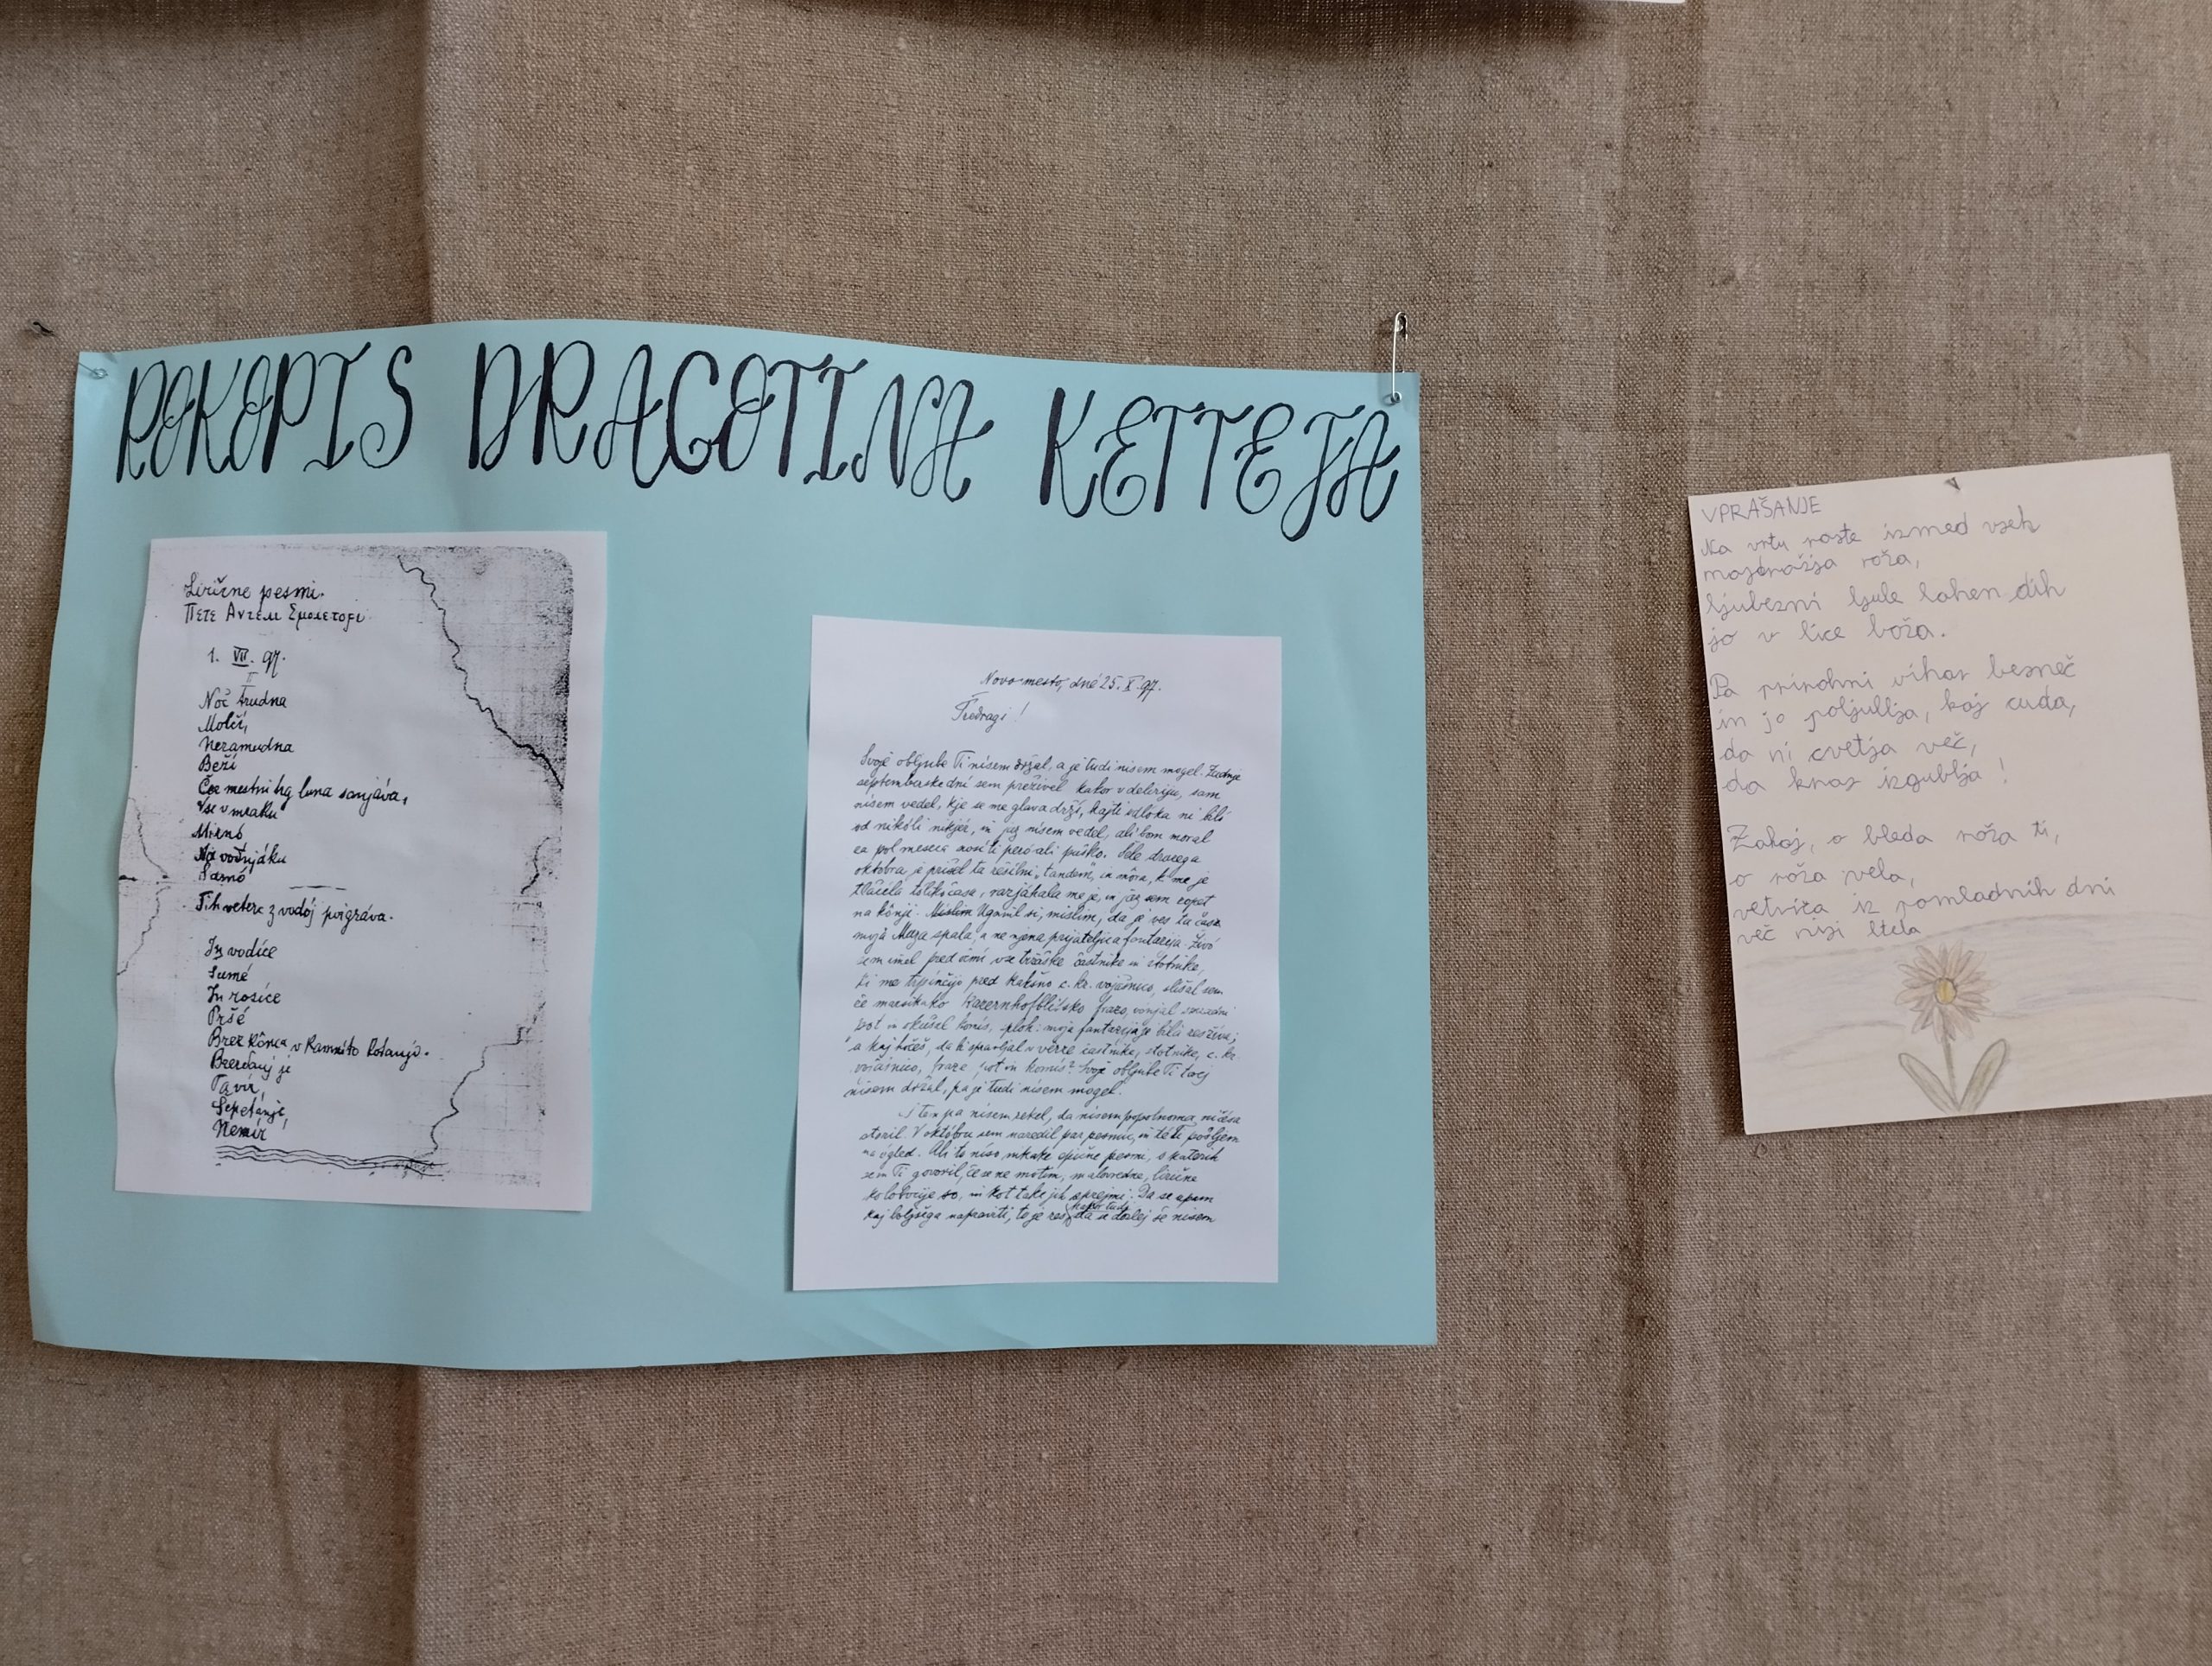 ROKOPIS DRAGOTINA KETTEJA
Lirične pesmi.
Πετε Αντελι Σμολετοβι
1. VII. 97.
II
Noč trudna
Molčí,
Nezamudna
Beží
Čez mestni trg luna sanjáva,
Vse v mraku
Mirnó
Na vodnjáku
Samó
Tih veterc z vodój poigráva.
In vodíce
Šumé
In rosíce
Pršé
Brez kônca v kamnito kotanjo.
Brezdanji je
Ta vir,
Šepetánje,
Nemír
Novo mesto, dné 25. X. 97.
Predragi!
Svoje obljube Ti nisem držal, a je tudi nisem mogel. Zadnje
septemberske dni sem preživel kakor v deliriju, sam
nisem vedel, kje se me glava drži, kajti odloka ni bilo
od nikoli nikjer, in jaz nisem vedel, ali bom moral
za pol meseca nositi pero ali puško. Šele drugega
oktobra je prišel ta rešilni "tandem", in môra, ki me je
tlačila toliko časa, razjahala me je, in jaz sem zopet
na kônji. Mislim Uganil si, mislim, da je ves ta čas
moja Muza spala, a ne njena prijateljica fantazija. Živo
sem imel pred očmi vse tržaške častnike in stotnike,
ki me trpinčijo pred kakšno c. kr. vojašnico, slišal sem
že marsikako Kazernhofblüsko frazo, vonjal smradni
pot in okušal komis, sploh: moja fantazija je bila rešživa;
a kaj hočeš, da bi spravljal v verze častnike, stotnike, c. kr.
vojašnico, fraze pot in komis? Svoje obljube Ti torej
nisem držal, pa je tudi nisem mogel.
S tem pa nisem rekel, da nisem popolnoma ničesa
storil. V oktobru sem naredil par pesmic, in té Ti pošljem
na ogled. Ali to niso nikake epične pesmi, o katerih
sem Ti govoril, če se ne motim, malovredne, lirične
kolobocije so, in kot take jih sprejmi. Da se upam
kaj boljšega napraviti, to je res, kakor tudi da se doslej še nisem
VPRAŠANJE
Na vrtu raste izmed vseh
najdražja roža,
ljubezni ljube lahen dih
jo v lice boža.
Pa prirohni vihar besneč
in jo poljublja, kaj čuda,
da ni cvetja več,
da kras izgublja!
Zakaj, o bleda roža ti,
o roža vela,
vetriča iz pomladnih dni
več nisi htela